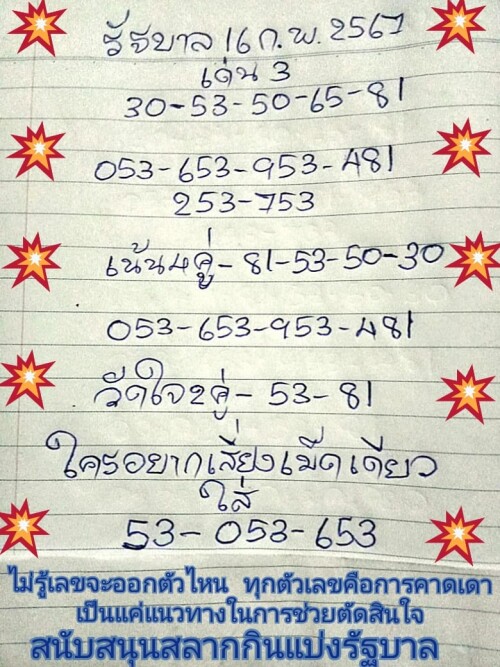 รัฐบาล 16 ก.พ. 2567
เด่น 3
30-53-50-65-81
053-653-953-481
253-753
เน้น4คู่-81-53-50-30
053-653-953-481
วัดใจ2คู่-53-81
ใครอยากเสี่ยงเม็ดเดียว
ใส่
53-053-653
ไม่รู้เลขจะออกตัวไหน ทุกตัวเลขคือการคาดเดา
เป็นแค่แนวทางในการช่วยตัดสินใจ
สนับสนุนสลากกินแบ่งรัฐบาล